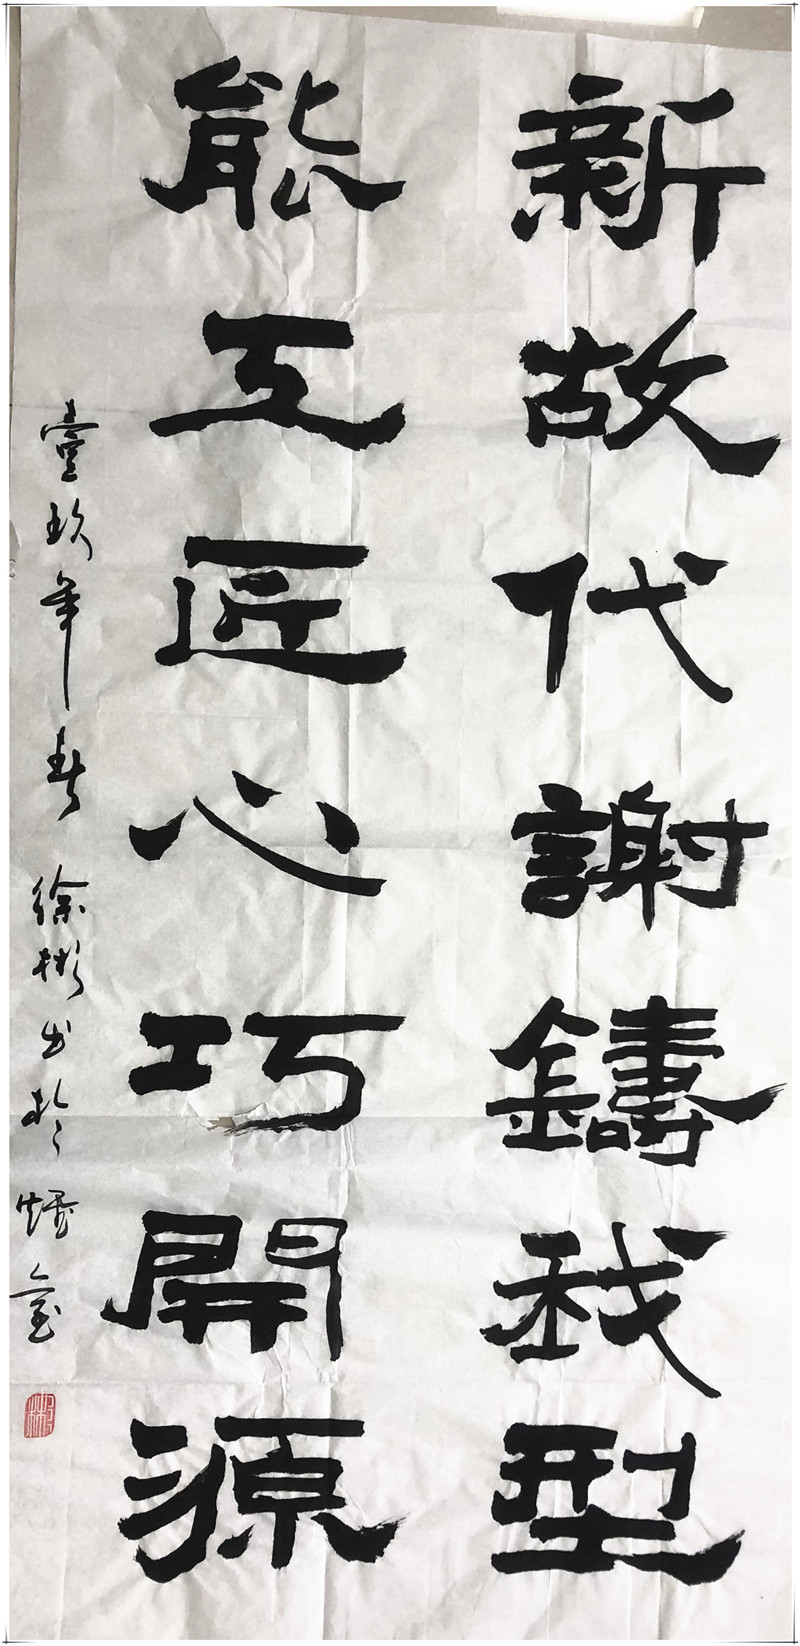 新故代謝鑄我型
能工匠心巧開源
壹玖年春徐彬书於燔室
彬